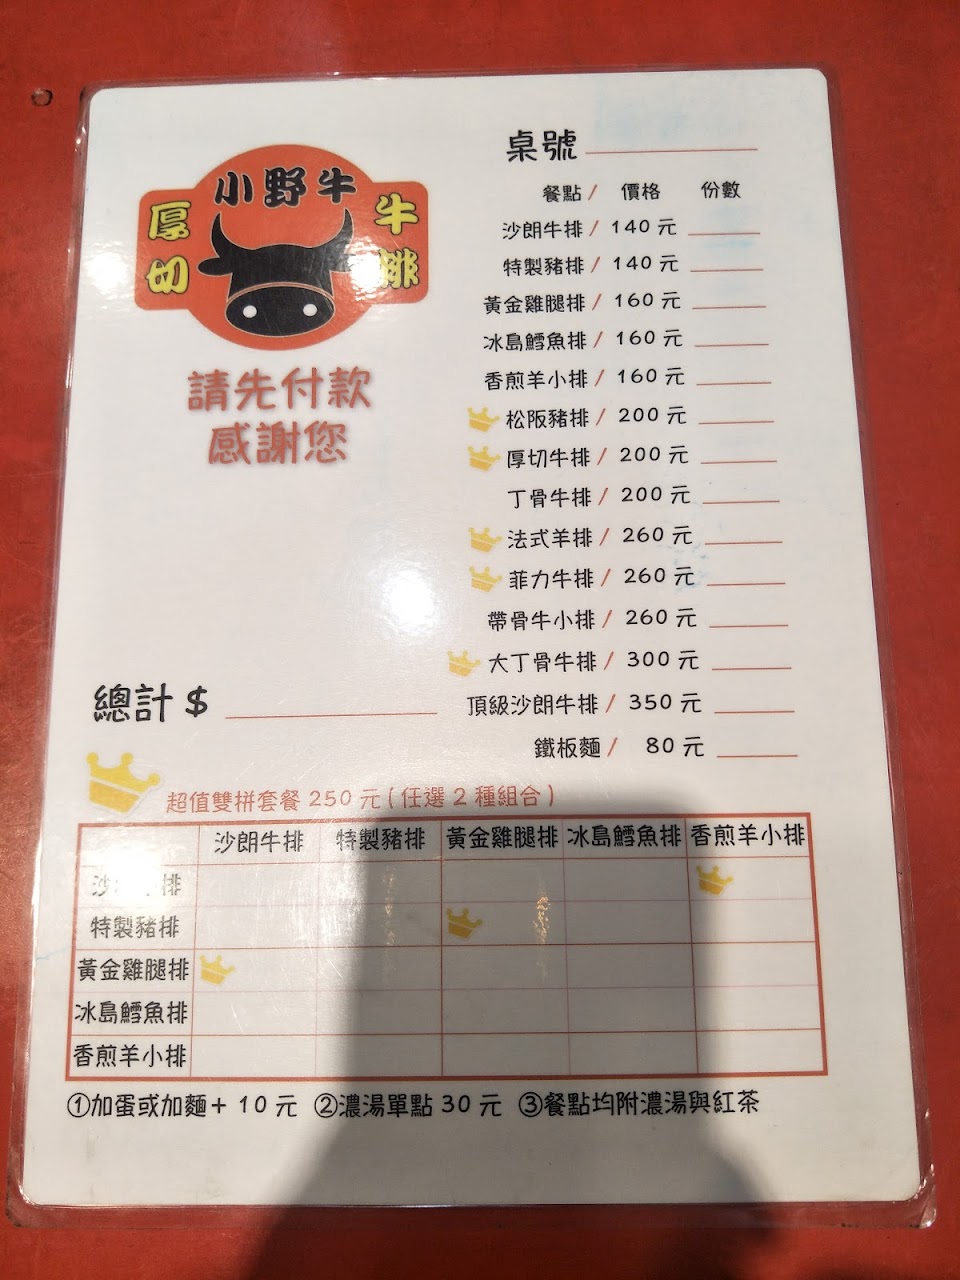 小野牛
厚切
牛排
請先付款
感謝您
桌號
餐點/ 價格 份數
沙朗牛排/ 140 元
特製豬排/ 140 元
黃金雞腿排/ 160 元
冰島鱈魚排/ 160 元
香煎羊小排/ 160 元
松阪豬排/ 200 元
厚切牛排/ 200 元
丁骨牛排/ 200 元
法式羊排/ 260 元
菲力牛排/ 260 元
帶骨牛小排/ 260 元
大丁骨牛排/ 300 元
頂級沙朗牛排/ 350 元
鐵板麵/ 80 元
總計 $
超值雙拼套餐 250 元(任選 2 種組合)
沙朗牛排 特製豬排 黃金雞腿排 冰島鱈魚排 香煎羊小排
沙朗牛排
特製豬排
黃金雞腿排
冰島鱈魚排
香煎羊小排
①加蛋或加麵+ 10 元 ②濃湯單點 30 元 ③餐點均附濃湯與紅茶